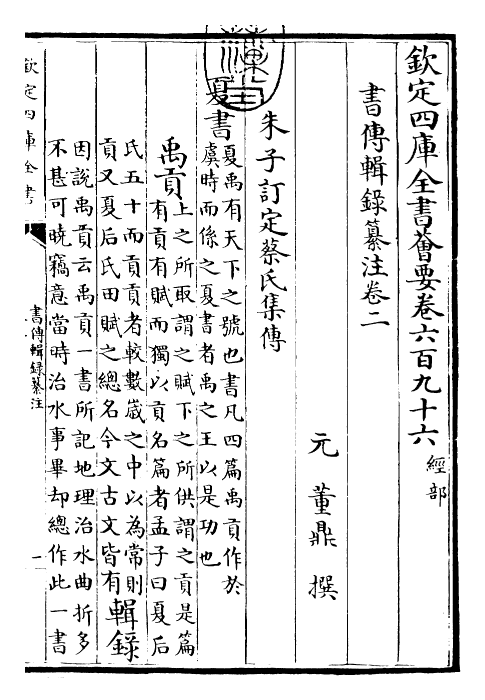 欽定四庫全書薈要卷六百九十六 經部
書傳輯錄纂注卷二
元 董鼎 撰
朱子訂定蔡氏集傳
夏書
夏禹有天下之號也書凡四篇禹貢作於
虞時而係之夏書者禹之王以是功也
禹貢
上之所取謂之賦下之所供謂之貢是篇
有貢有賦而獨以貢名篇者孟子曰夏后
氏五十而貢貢者較數歲之中以為常則
貢又夏后氏田賦之總名今文古文皆有
輯錄
因說禹貢云禹貢一書所記地理治水曲折多
不甚可曉竊意當時治水事畢却總作此一書
欽定四庫全書
書傳輯錄纂注
一